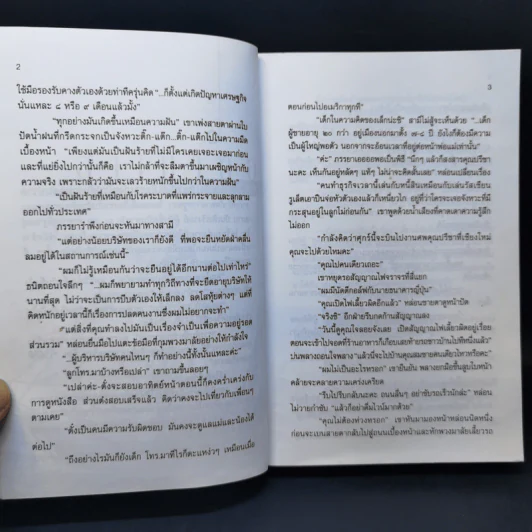 2
ใช้มือรองรับคางตัวเองด้วยท่าทีครุ่นคิด "...ก็ตั้งแต่เกิดปัญหาเศรษฐกิจ
นั่นแหละ ๘ หรือ ๙ เดือนแล้วมั้ง"
"ทุกอย่างมันเกิดขึ้นเหมือนความฝัน" เขาเพ่งสายตาผ่านใบ
ปัดน้ำฝนที่กรีดกระจกเป็นจังหวะติ๊ก-แต๊ก...ติ๊ก-แต๊กไปในความมืด
เบื้องหน้า "เพียงแต่มันเป็นฝันร้ายที่ไม่มีใครเคยเจอะเจอมาก่อน
และที่แย่ยิ่งไปกว่านั้นก็คือ เราไม่กล้าที่จะลืมตาขึ้นมาเผชิญหน้ากับ
ความจริง เพราะกลัวว่ามันจะเลวร้ายหนักขึ้นไปกว่าในความฝัน"
"เป็นฝันร้ายที่เหมือนกับโรคระบาดที่แพร่กระจายและลุกลาม
ออกไปทั่วประเทศ"
ภรรยารำพึงก่อนจะหันมาทางสามี
"แต่อย่างน้อยบริษัทของเราก็ยังดี ที่พอจะยืนหยัดฝ่าคลื่น
ลมอยู่ได้ในสถานการณ์เช่นนี้"
"ผมก็ไม่รู้เหมือนกันว่าจะยืนอยู่ได้อีกนานต่อไปเท่าไหร่"
ถอนใจลึกๆ "ผมก็พยายามทำทุกวิถีทางที่จะยืดอายุบริษัทให้
นานที่สุด ไม่ว่าจะเป็นการบีบตัวเองให้เล็กลง ลดโสหุ้ยต่างๆ แต่ที่
คิดหนักอยู่เวลานี้ก็เรื่องการปลดคนงานซึ่งผมไม่อยากจะทำ"
"แต่สิ่งที่คุณทำลงไปมันเป็นเรื่องจำเป็นเพื่อความอยู่รอด
ส่วนรวม" หล่อนยื่นมือไปแตะข้อมือที่กุมพวงมาลัยอย่างให้กำลังใจ
"ผู้บริหารบริษัทคนไหนๆ ก็ทำอย่างนี้ทั้งนั้นแหละค่ะ"
"ลูกโทร.มาบ้างหรือเปล่า" เขาถามขึ้นลอยๆ
"เปล่าค่ะ-ตั้งจะสอบอาทิตย์หน้าตอนนี้ก็คงคร่ำเคร่งกับ
การดูหนังสือ ส่วนต่งสอบเสร็จแล้ว คิดว่าคงจะไปเที่ยวกับเพื่อนๆ
ตามเคย"
"ตั้งเป็นคนมีความรับผิดชอบ มันคงจะดูแลแม่และน้องได้
ต่อไป"
"ถึงอย่างไรมันก็ยังเด็ก โทร.มาทีไรก็คะแหง่วๆ เหมือนเมื่อ
3
ตอนก่อนไปอเมริกาทุกที"
"เด็กในความคิดของเล็กน่ะซิ" สามีไม่สู้จะเห็นด้วย "...เด็ก
ผู้ชายอายุ ๒๐ กว่า อยู่เมืองนอกมาตั้ง ๗-๘ ปี ยังไงก็ต้องมีความ
เป็นผู้ใหญ่พอตัว นอกจากจะอ้อนเวลาที่อยู่ต่อหน้าพ่อแม่เท่านั้น"
"ค่ะ" ภรรยาเออออพอเป็นพิธี "นึกๆ แล้วก็สงสารคุณปรีชา
นะคะ เห็นกันอยู่หลัดๆ แท้ๆ ไม่น่าจะคิดสั้นเลย" หล่อนเปลี่ยนเรื่อง
"คนทำธุรกิจเวลานี้เล่นกับหนี้สินเหมือนกับเล่นรัสเซียน
รูเล็ตเอาปืนจ่อหัวตัวเองแล้วก็เหนี่ยวไก อยู่ที่ว่าใครจะเจอจังหวะที่มี
กระสุนอยู่ในลูกโม่ก่อนกัน" เขาพูดด้วยน้ำเสียงที่คาดเดาความรู้สึก
ไม่ออก
"กำลังคิดว่าศุกร์นี้จะบินไปงานศพคุณปรีชาที่เชียงใหม่
คุณจะไปด้วยไหมคะ"
"คุณไปคนเดียวเถอะ"
เขาหยุดรอสัญญาณไฟจราจรที่สี่แยก
"ผมมีนัดตีกอล์ฟกับนายธนาคารญี่ปุ่น"
"คุณเปิดไฟเลี้ยวผิดอีกแล้ว" หล่อนชายตาดูหน้าปัด
"จริงซิ" อีกฝ่ายรีบกดก้านสัญญาณลง
"วันนี้ดูคุณใจลอยจังเลย เปิดสัญญาณไฟเลี้ยวผิดอยู่เรื่อย
ตอนจะเข้าไปจอดที่ร้านอาหารก็เกือบเฉยท้ายรถชาวบ้านไปทีหนึ่งแล้ว"
บ่นพลางถอนใจพลาง "แล้วนี่จะไปบ้านคุณผมขายดนเดียวไหวหรือคะ"
"ผมไม่เป็นอะไรหรอก" เขายืนยัน พลางยกมือขึ้นลูบใบหน้า
คล้ายจะคลายความเคร่งเครียด
"รีบไปรีบกลับนะคะ ถนนลื่นๆ อย่าขับรถเร็วนักล่ะ" หล่อน
ไม่วายกำชับ "แล้วก็อย่าดื่มไวน์มากด้วย"
"คุณไม่ต้องห่วงหรอก" เขาหันมามองหน้าหล่อนนิดหนึ่ง
ก่อนจะเบนสายตากลับไปสู่ถนนเบื้องหน้าและหักพวงมาลัยเลี้ยวรถ